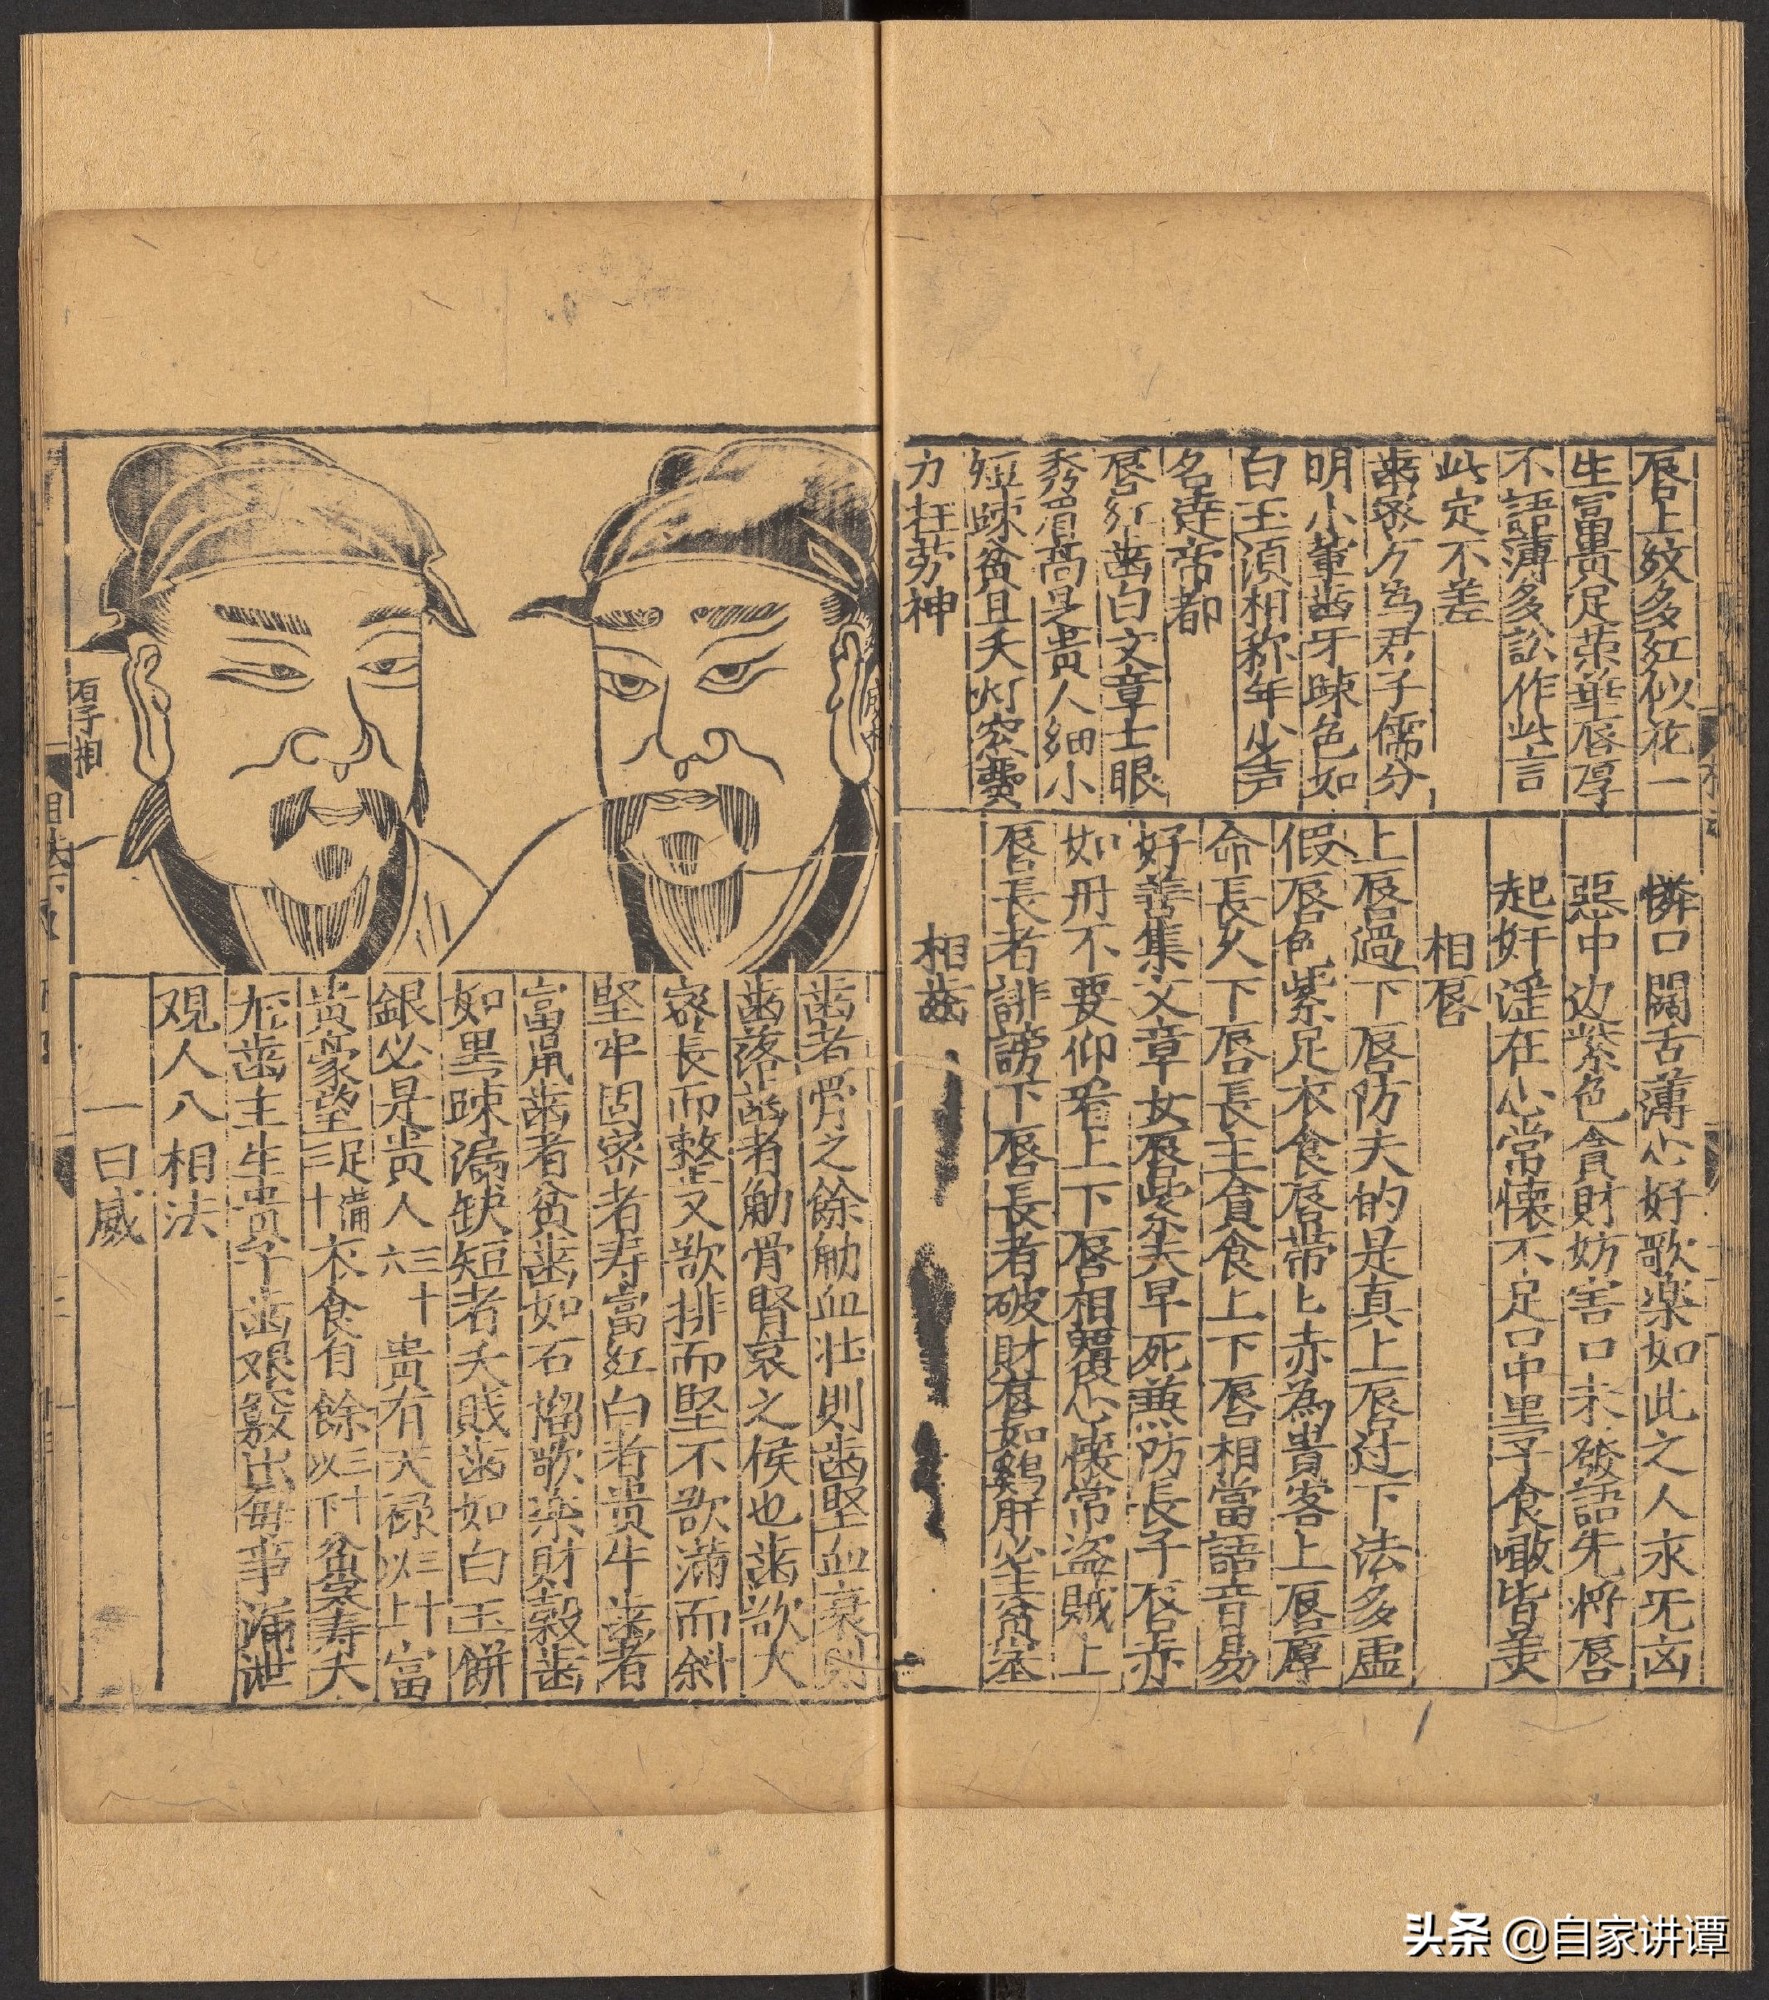 唇上紋多紅似花一
生富貴足荣華唇厚
不語薄多訟作此言
此定不差
歯宻方為君子儒分
明小軰歯牙踈色如
白玉湏相称年少声
名達帝都
唇紅歯白文章士眼
秀眉高是貴人細小
短踈貧且夭灯窓費
力枉劳神
憐口闊舌薄心好歌楽如此之人永无凶
惡中边紫色貪財妨害口未發語先将唇
起奸淫在心常懐不足口中黒子食噉皆美
相唇
上唇過下唇防夫的是真上唇过下法多虛
假唇色紫足衣食唇带上赤為貴客上唇厚
命長久下唇長主貪食上下唇相當語音易
好善集文章女唇紫夫早死兼防長子唇赤
如丹不要仰看上下唇相覆心懐常盗賊上
唇長者誹謗下唇長者破財唇如鷄肝必主貧寒
相歯
厚相
歯者骨之餘觔血壮則歯堅血衰則
歯落歯者觔骨腎衰之候也歯欲大
宻長而整又欲排而堅不欲滿而斜
堅牢固宻者寿富紅白者贵牛歯者
富鼠歯者貧歯如石榴歌楽財穀歯
如黒踈漏缺短者夭贱歯如白玉餅
銀必是贵人三十六贵有天禄三十以上富
贵豪望三十足滿衣食有餘三十以下貧寒寿夭
尢歯主生贵子歯艰竅出每事漏泄
观人八相法
一曰威
头条 @自家讲谭